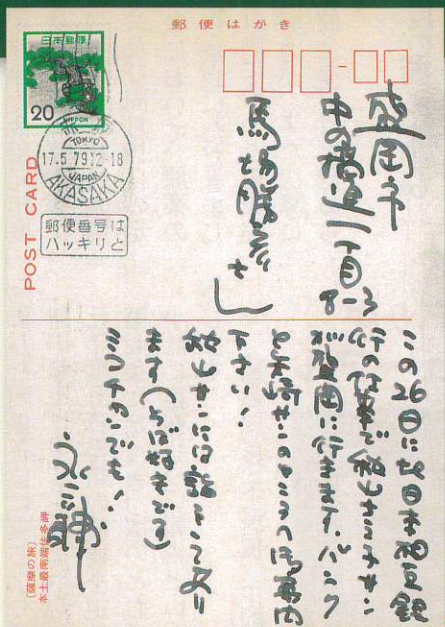 郵便はがき
日本郵便
20
NIPPON
TOKYO
17.5.79 12-18
JAPAN
AKASAKA
郵便番号は
ハッキリと
POST CARD
盛岡市
中の橋通一丁目
8-3
馬場勝彦
この26日に北日本相互銀
行の仕事で秋山ちえ子サン
が盛岡に行きます。
サンのところへ御案内
下さい!
秋山サンには話してあり
ます(そば好きです)
でも!
永六輔
[薩摩の旅]
本土最南端佐多岬